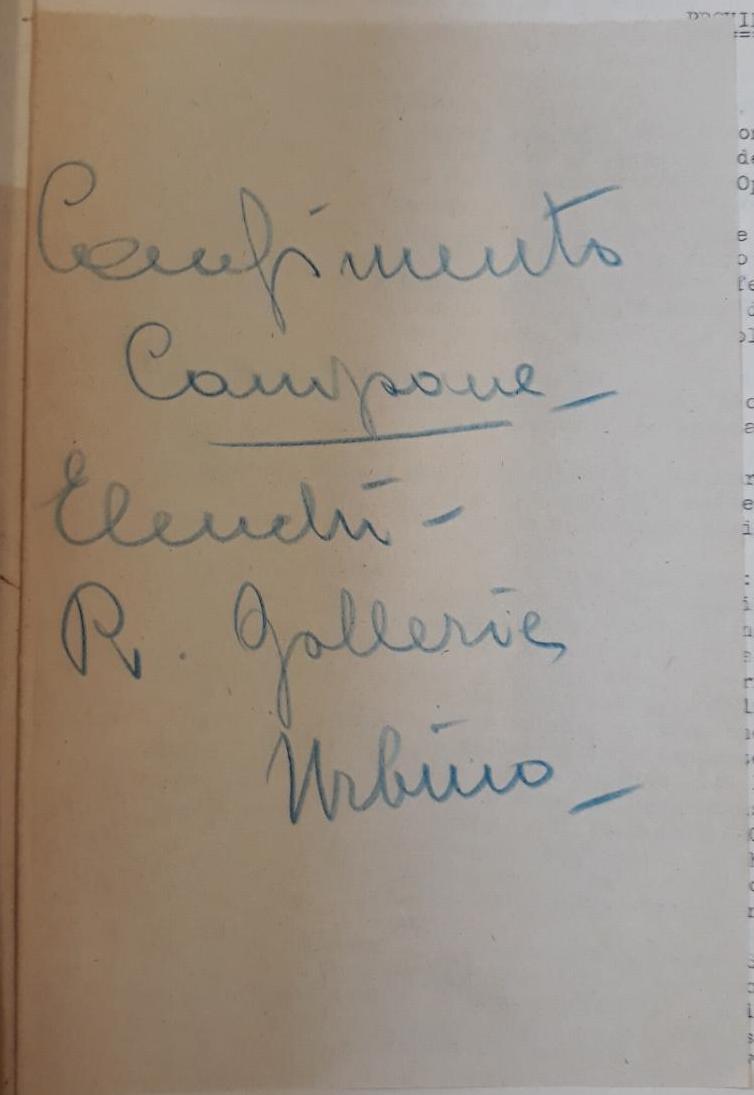 Censimento
Campane -
Elenchi -
R. Gallerie
Urbino -